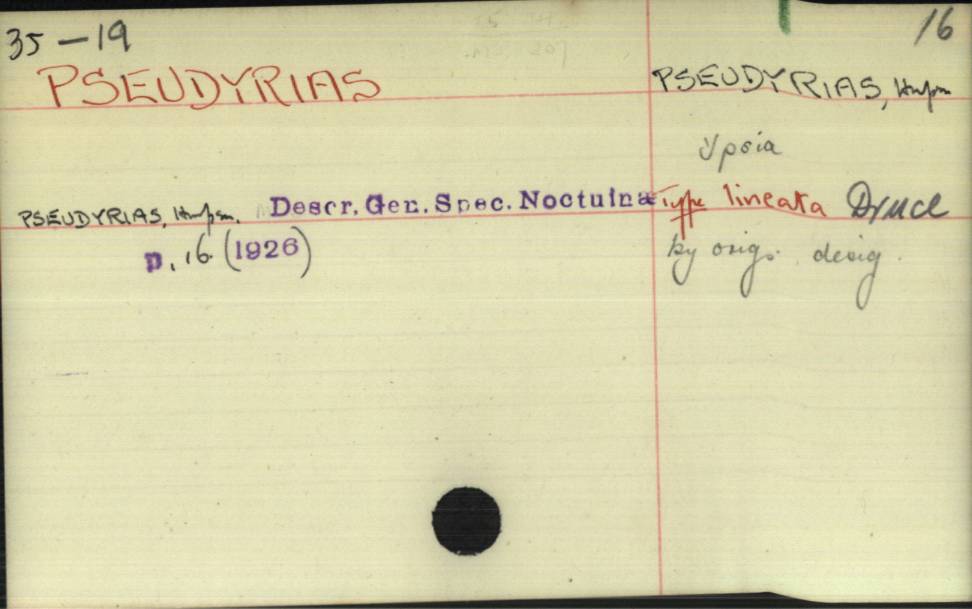 35 — 19
16
PSEUDYRIAS
PSEUDYRIAS, Hmpsn.
Ypsia
PSEUDYRIAS, Hmpsn. Descr. Gen. Spec. Noctuinæ
Type lineata Druce
p. 16. (1926)
by orig. desig.